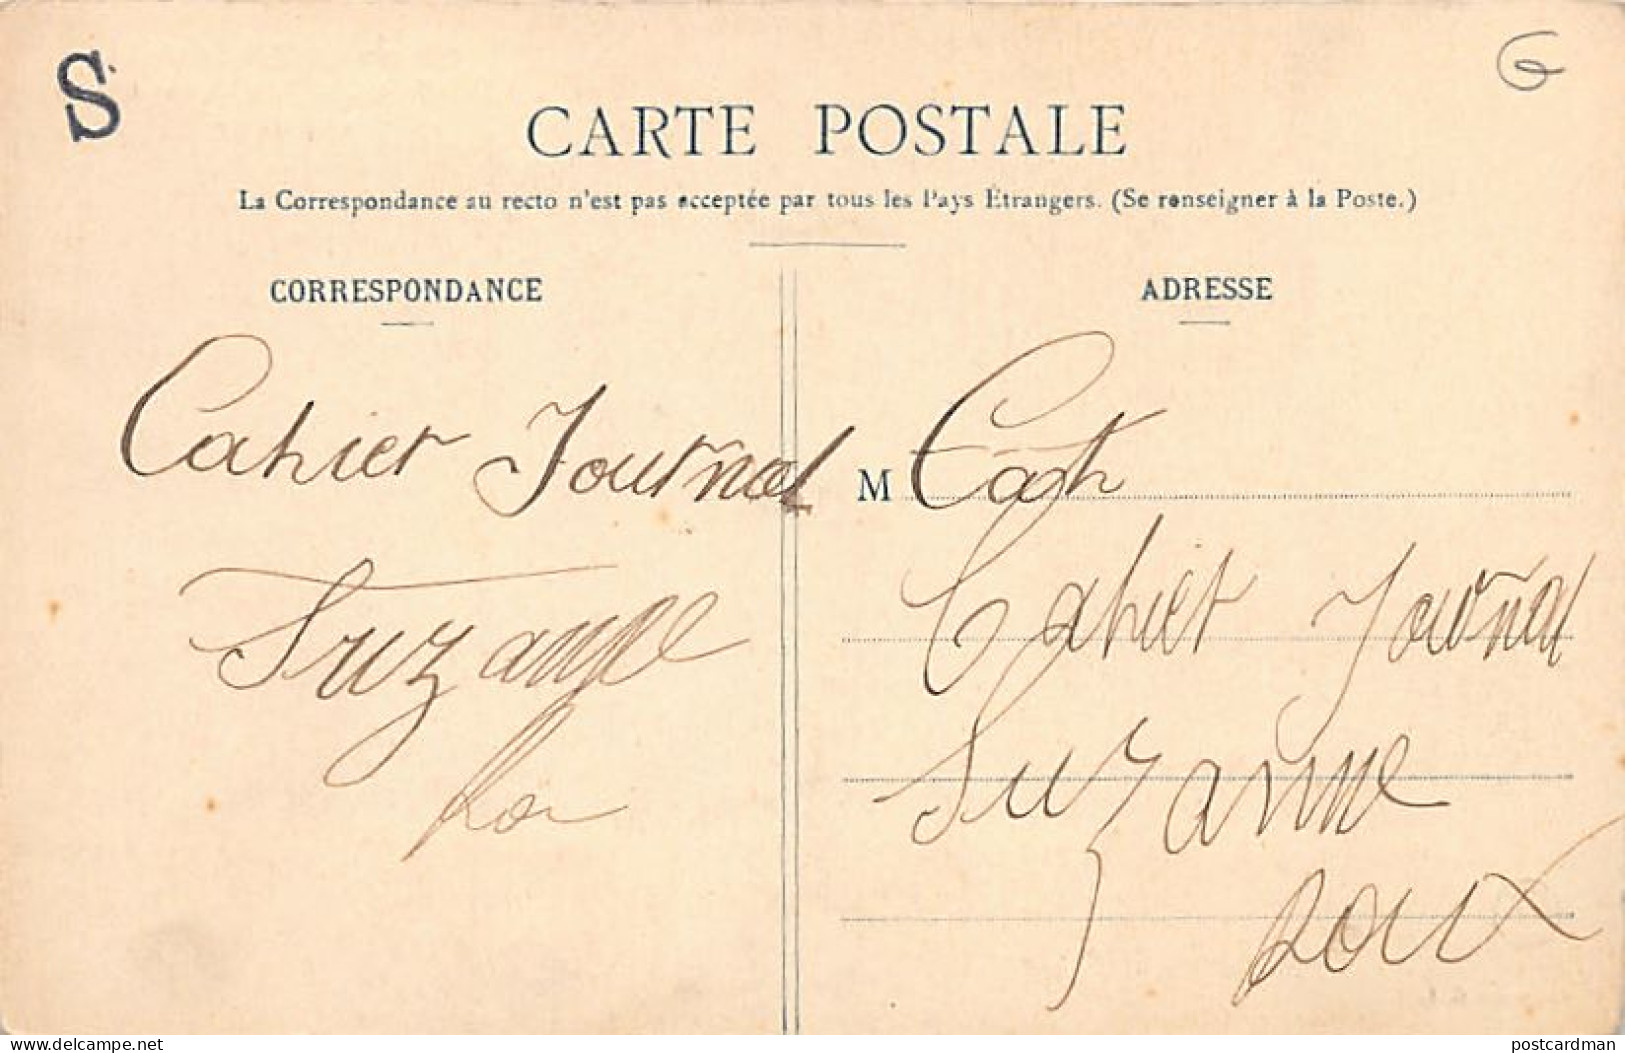 S
G
CARTE POSTALE
La Correspondance au recto n'est pas acceptée par tous les Pays Étrangers. (Se renseigner à la Poste.)
CORRESPONDANCE
Cahier Journal
Suzanne
ADRESSE
M
Cahier Journal
Suzanne
Roux
delcampe.net
postcardman